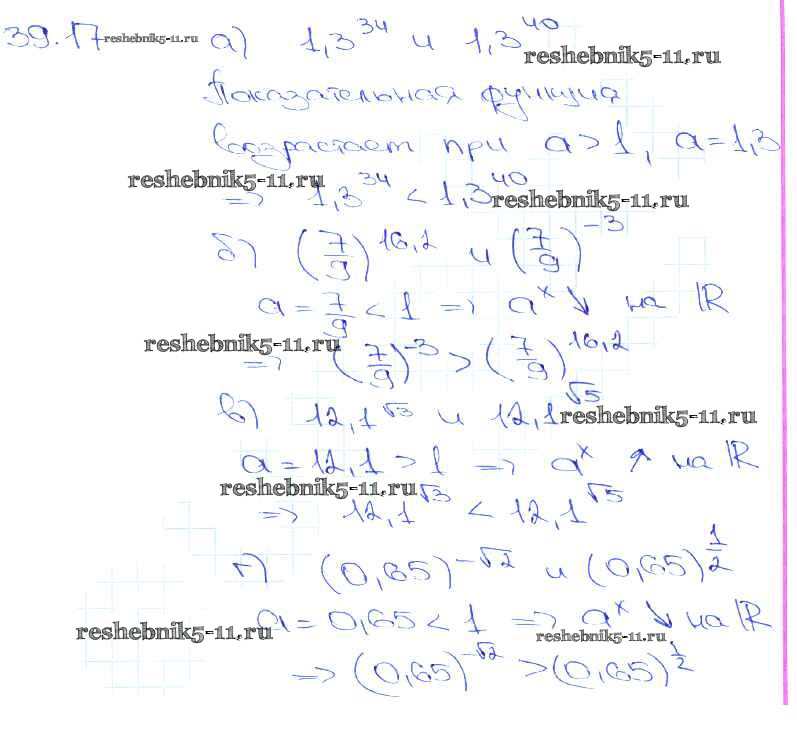 39.17 reshebnik5-11.ru а) 1,3^34 и 1,3^40
reshebnik5-11.ru
Показательная функция
возрастает при a > 1, a = 1,3
reshebnik5-11.ru
=> 1,3^34 < 1,3^40 reshebnik5-11.ru
б) (7/9)^16,2 и (7/9)^-3
a = 7/9 < 1 => a^x ↘ на R
reshebnik5-11.ru
=> (7/9)^-3 > (7/9)^16,2
в) 12,1^√3 и 12,1^√5 reshebnik5-11.ru
a = 12,1 > 1 => a^x ↗ на R
reshebnik5-11.ru
=> 12,1^√3 < 12,1^√5
г) (0,65)^-√2 и (0,65)^1/2
reshebnik5-11.ru a = 0,65 < 1 => a^x ↘ на R
reshebnik5-11.ru
=> (0,65)^-√2 > (0,65)^1/2